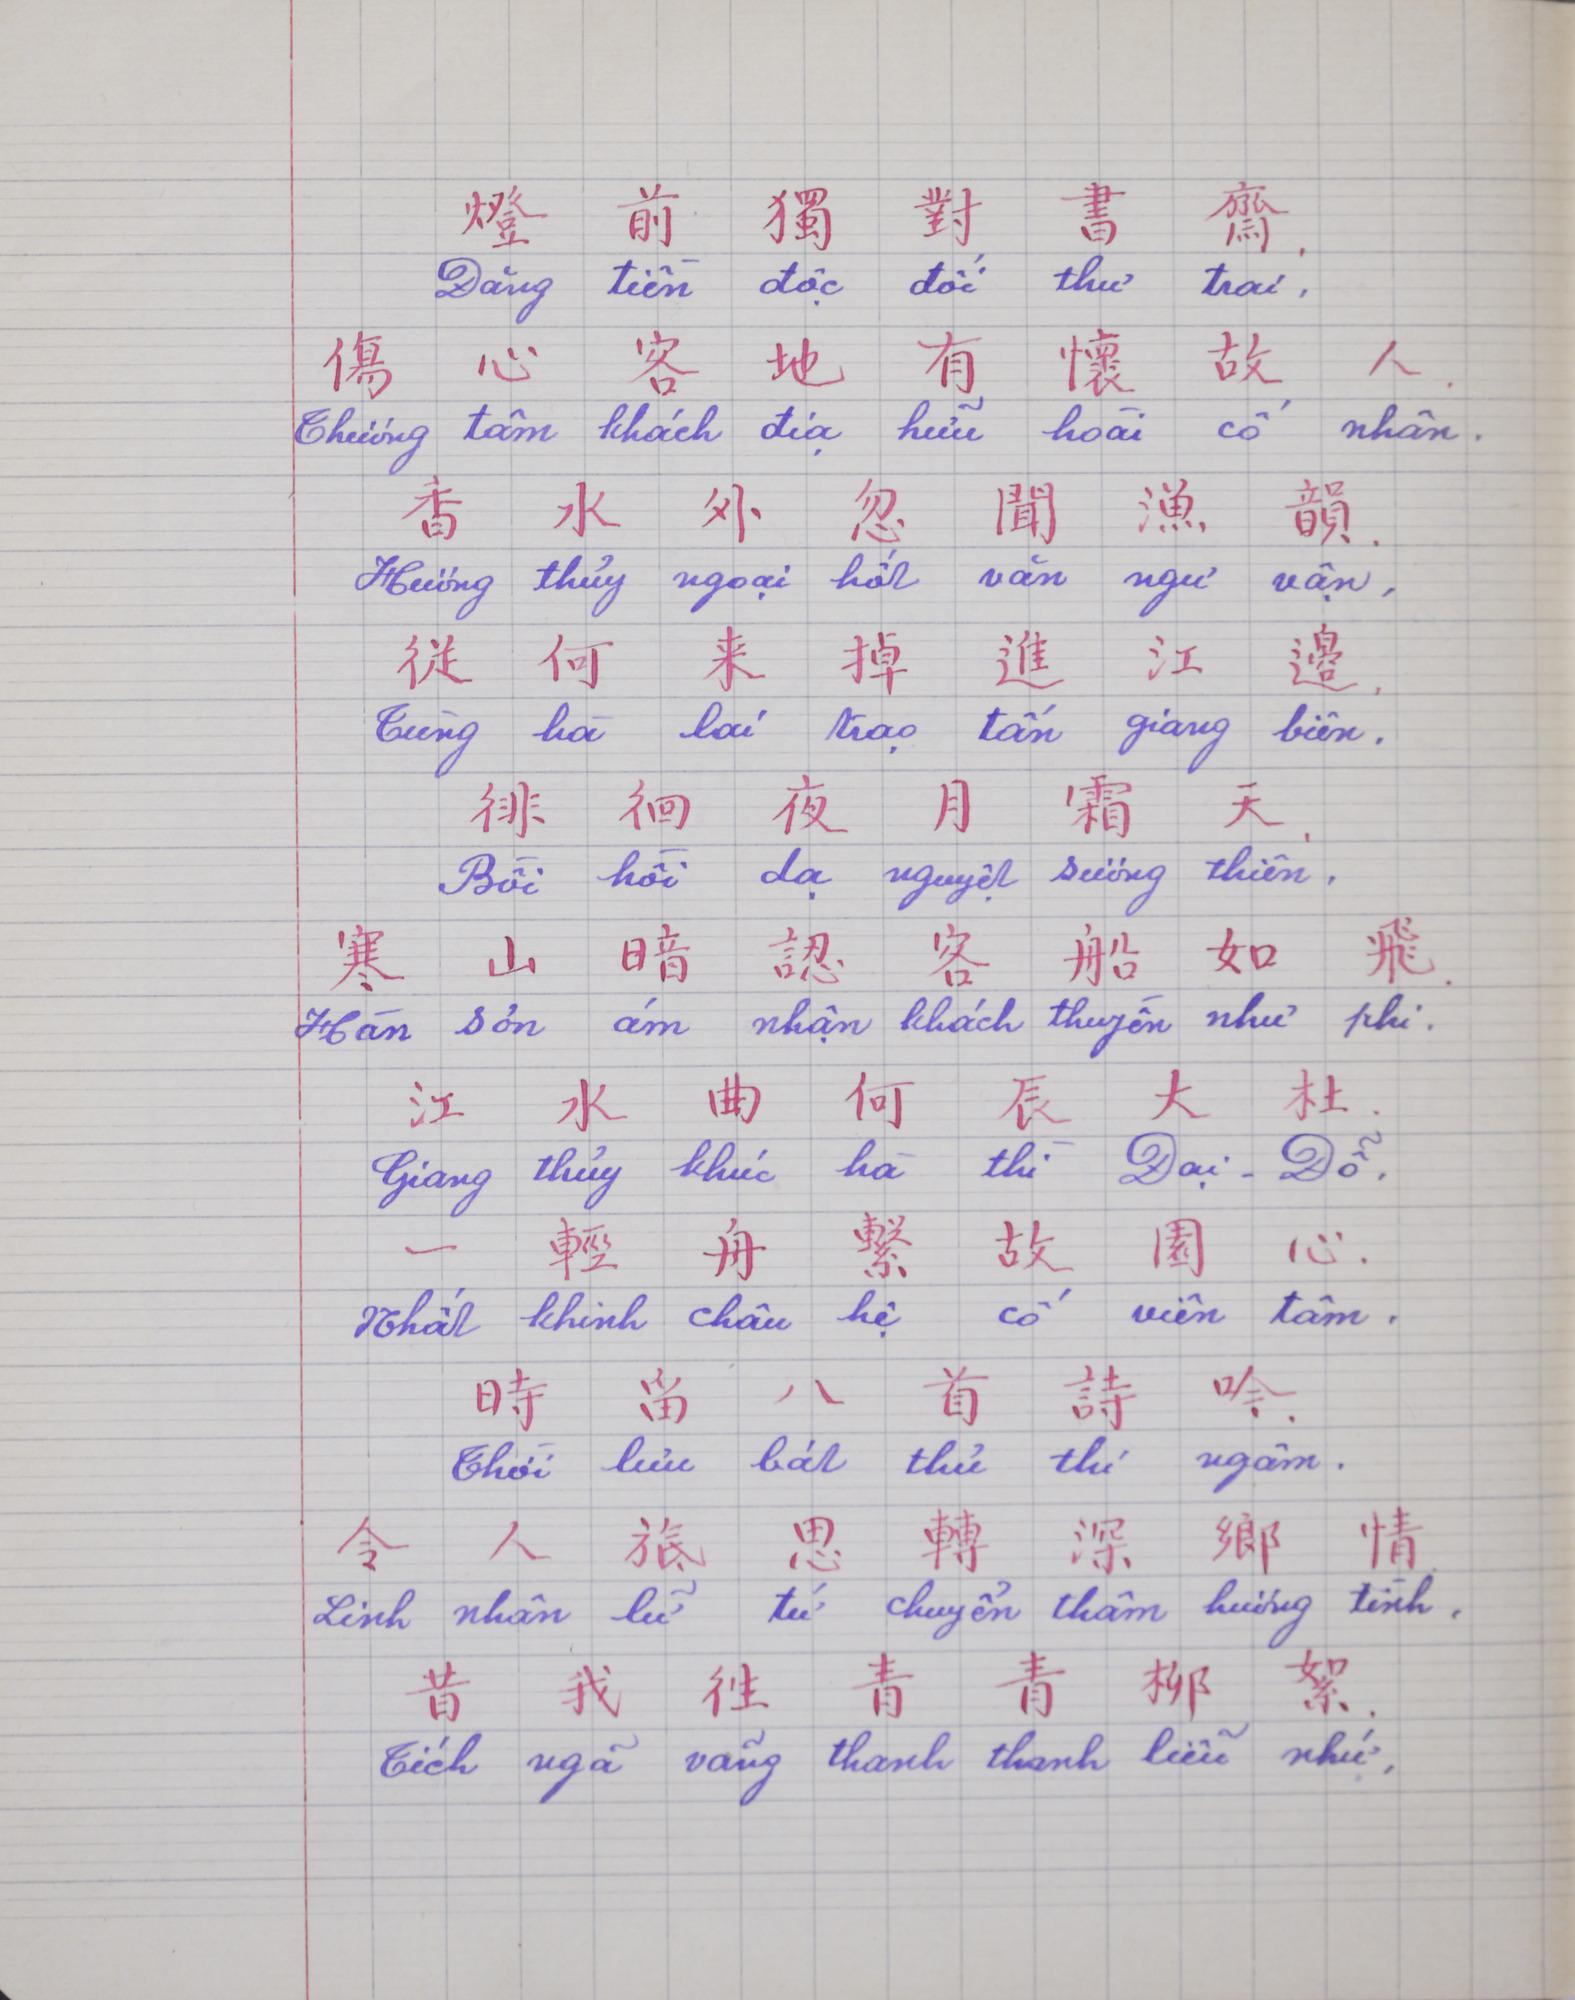 燈 前 獨 對 書 齋.
Đăng tiền độc đối thư trai.
傷 心 客 地 有 懷 故 人.
Thương tâm khách địa hữu hoài cố nhân.
香 水 外 忽 聞 漁 韻.
Hương thủy ngoại hốt văn ngư vận,
從 何 来 掉 進 江 邊.
Tùng hà lai trạo tấn giang biên.
徘 徊 夜 月 霜 天.
Bồi hồi dạ nguyệt sương thiên.
寒 山 暗 認 客 船 如 飛.
Hàn sơn ám nhận khách thuyền như phi.
江 水 曲 何 辰 大 杜.
Giang thủy khúc hà thì Đại-Đỗ.
一 輕 舟 繫 故 園 心.
Nhất khinh châu hệ cố viên tâm.
時 畄 八 首 詩 吟.
Thời lưu bát thủ thi ngâm.
令 人 旅 思 轉 深 鄉 情.
Linh nhân lữ tứ chuyển thâm hương tình.
昔 我 徃 青 青 柳 絮.
Tích ngã vãng thanh thanh liễu nhứ,